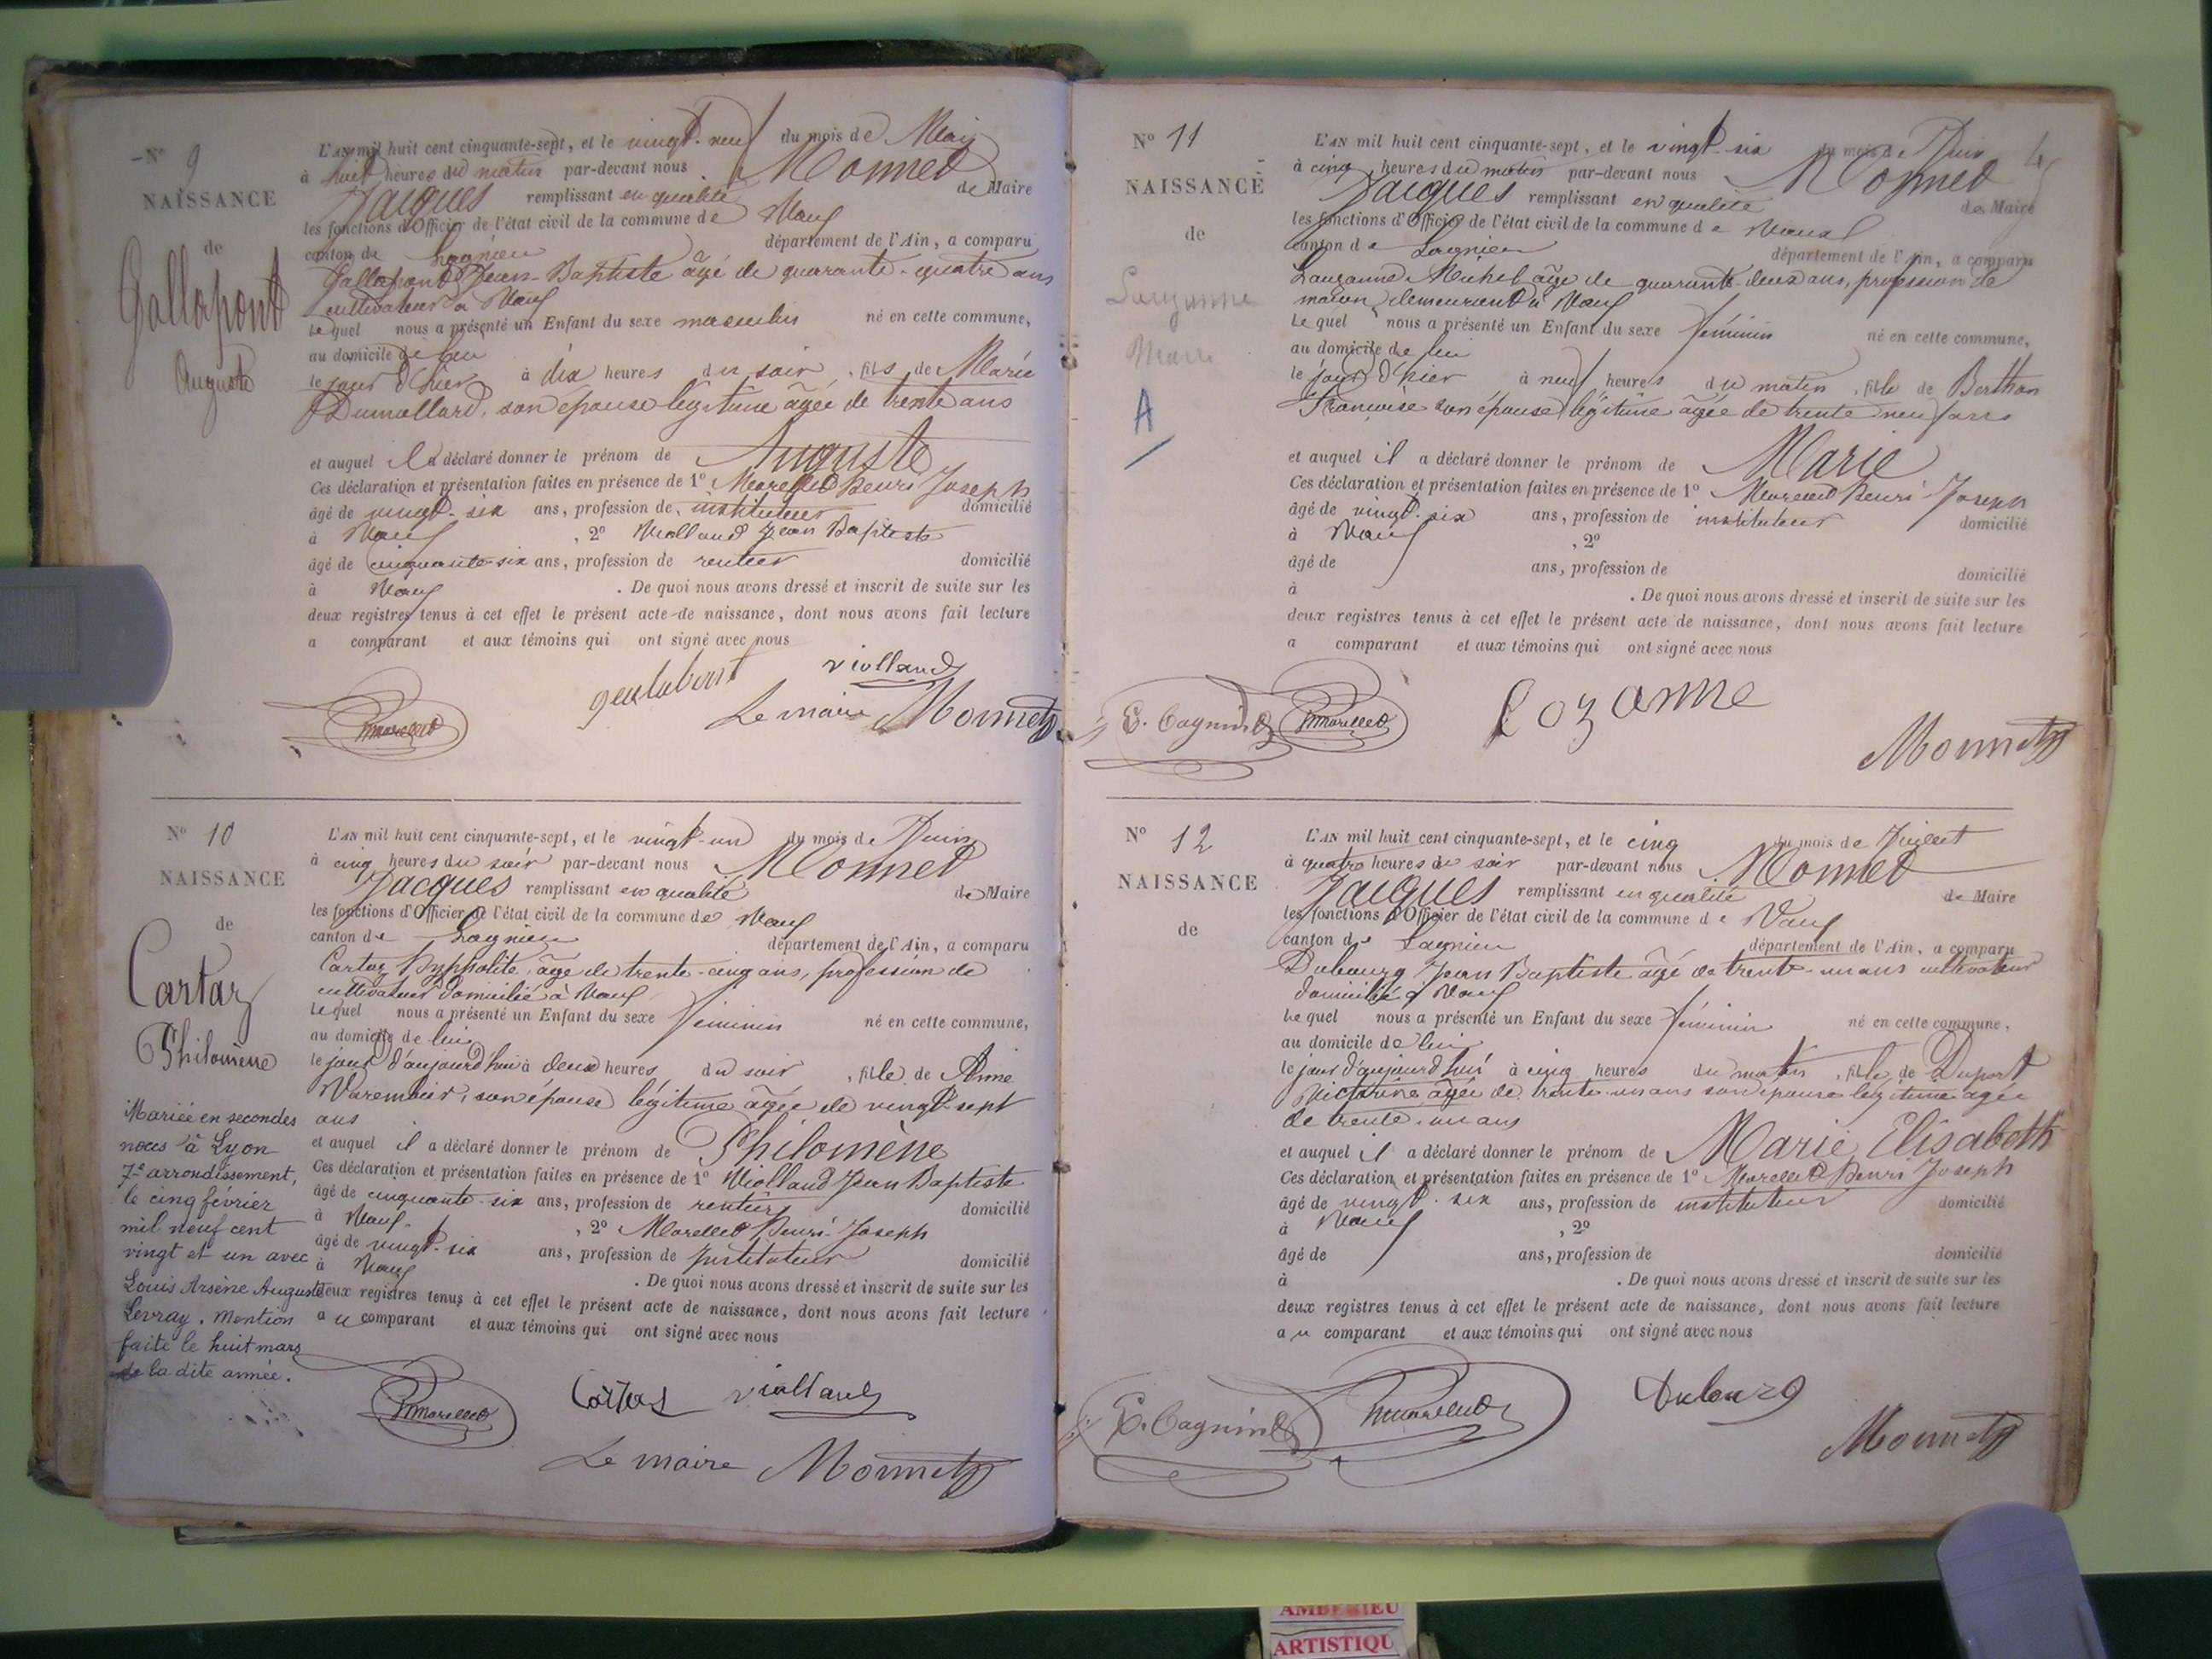 N° 9
NAISSANCE
de
Gallopont
Auguste
L'AN mil huit cent cinquante-sept, et le vingt-neuf du mois de Mai
à huit heures du matin par-devant nous Monnet
Jacques remplissant en qualité de Maire
les fonctions d'Officier de l'état civil de la commune de Vaux
canton de Lagnieu département de l'Ain, a comparu
Gallopont Jean-Baptiste âgé de quarante-quatre ans
cultivateur à Vaux
Lequel nous a présenté un Enfant du sexe masculin né en cette commune,
au domicile de lui
le jour d'hier à dix heures du soir, fils de Marie
Dumollard, son épouse légitime âgée de trente ans
et auquel il a déclaré donner le prénom de Auguste
Ces déclaration et présentation faites en présence de 1° Morellet Henri Joseph
âgé de vingt-six ans, profession de instituteur domicilié
à Vaux, 2° Violland Jean Baptiste
âgé de cinquante-six ans, profession de rentier domicilié
à Vaux. De quoi nous avons dressé et inscrit de suite sur les
deux registres tenus à cet effet le présent acte de naissance, dont nous avons fait lecture
a comparant et aux témoins qui ont signé avec nous
violland
hmorellet
Le maire Monnet
N° 10
NAISSANCE
de
Cartaz
Philomène
Mariée en secondes
noces à Lyon
7e arrondissement,
le cinq février
mil neuf cent
vingt et un avec
Louis Arsène Auguste
Levray. Mention
faite le huit mars
de la dite année.
L'AN mil huit cent cinquante-sept, et le vingt-un du mois de Juin
à cinq heures du soir par-devant nous Monnet
Jacques remplissant en qualité de Maire
les fonctions d'Officier de l'état civil de la commune de Vaux
canton de Lagnieu département de l'Ain, a comparu
Cartaz Hyppolite, âgé de trente-cinq ans, profession de
cultivateur domicilié à Vaux
Lequel nous a présenté un Enfant du sexe féminin né en cette commune,
au domicile de lui
le jour d'aujourd'hui à deux heures du soir, fille de Anne
Varembier, son épouse légitime âgée de vingt-sept
ans
et auquel il a déclaré donner le prénom de Philomène
Ces déclaration et présentation faites en présence de 1° Violland Jean Baptiste
âgé de cinquante-six ans, profession de rentier domicilié
à Vaux, 2° Morellet Henri Joseph
âgé de vingt-six ans, profession de Instituteur domicilié
à Vaux. De quoi nous avons dressé et inscrit de suite sur les
deux registres tenus à cet effet le présent acte de naissance, dont nous avons fait lecture
au comparant et aux témoins qui ont signé avec nous
hmorellet Cartas violland
Le maire Monnet
N° 11
NAISSANCE
de
Lauzanne
Marie
A
4
L'AN mil huit cent cinquante-sept, et le vingt-six du mois de Juin
à cinq heures du matin par-devant nous Monnet
Jacques remplissant en qualité de Maire
les fonctions d'Officier de l'état civil de la commune de Vaux
canton de Lagnieu département de l'Ain, a comparu
Lauzanne Michel âgé de quarante-deux ans, profession de
maçon demeurant à Vaux
Lequel nous a présenté un Enfant du sexe féminin né en cette commune,
au domicile de lui
le jour d'hier à neuf heures du matin, fille de Berthon
Françoise son épouse légitime âgée de trente neuf ans
et auquel il a déclaré donner le prénom de Marie
Ces déclaration et présentation faites en présence de 1° Morellet Henri Joseph
âgé de vingt-six ans, profession de instituteur domicilié
à Vaux, 2°
âgé de ans, profession de domicilié
à . De quoi nous avons dressé et inscrit de suite sur les
deux registres tenus à cet effet le présent acte de naissance, dont nous avons fait lecture
a comparant et aux témoins qui ont signé avec nous
hmorellet Lozanne
Monnet
N° 12
NAISSANCE
de
L'AN mil huit cent cinquante-sept, et le cinq du mois de Juillet
à quatre heures du soir par-devant nous Monnet
Jacques remplissant en qualité de Maire
les fonctions d'Officier de l'état civil de la commune de Vaux
canton de Lagnieu département de l'Ain, a comparu
Dubourg Jean Baptiste âgé de trente-un ans cultivateur
domicilié à Vaux
Lequel nous a présenté un Enfant du sexe féminin né en cette commune,
au domicile de lui
le jour d'aujourd'hui à cinq heures du matin, fille de Duport
Victorine âgée de trente-un ans son épouse légitime âgée
de trente-un ans
et auquel il a déclaré donner le prénom de Marie Elisabeth
Ces déclaration et présentation faites en présence de 1° Morellet Henri Joseph
âgé de vingt-six ans, profession de instituteur domicilié
à Vaux, 2°
âgé de ans, profession de domicilié
à . De quoi nous avons dressé et inscrit de suite sur les
deux registres tenus à cet effet le présent acte de naissance, dont nous avons fait lecture
au comparant et aux témoins qui ont signé avec nous
hmorellet Dubourg
Monnet
AMBERIEU
ARTISTIQU